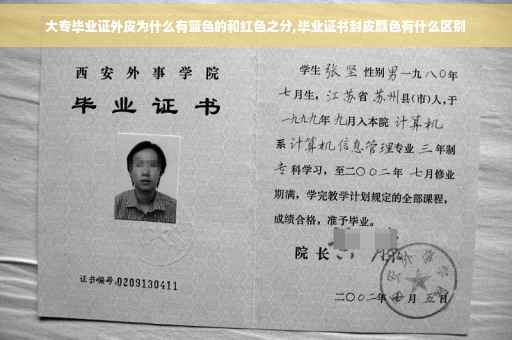 大专毕业证外皮为什么有蓝色的和红色之分,毕业证书封皮颜色有什么区别
西安外事学院
毕业证书
证书编号:0209130411
学生 张坚 性别 男 一九八〇年
七月生, 江苏省 苏州 县(市)人,于
一九九九年 九月入本院 计算机
系 计算机信息管理 专业 三 年制
专 科学习,至二〇〇二年 七月修业
期满,学完教学计划规定的全部课程,
成绩合格,准予毕业。
院长
二〇〇二年 月五日